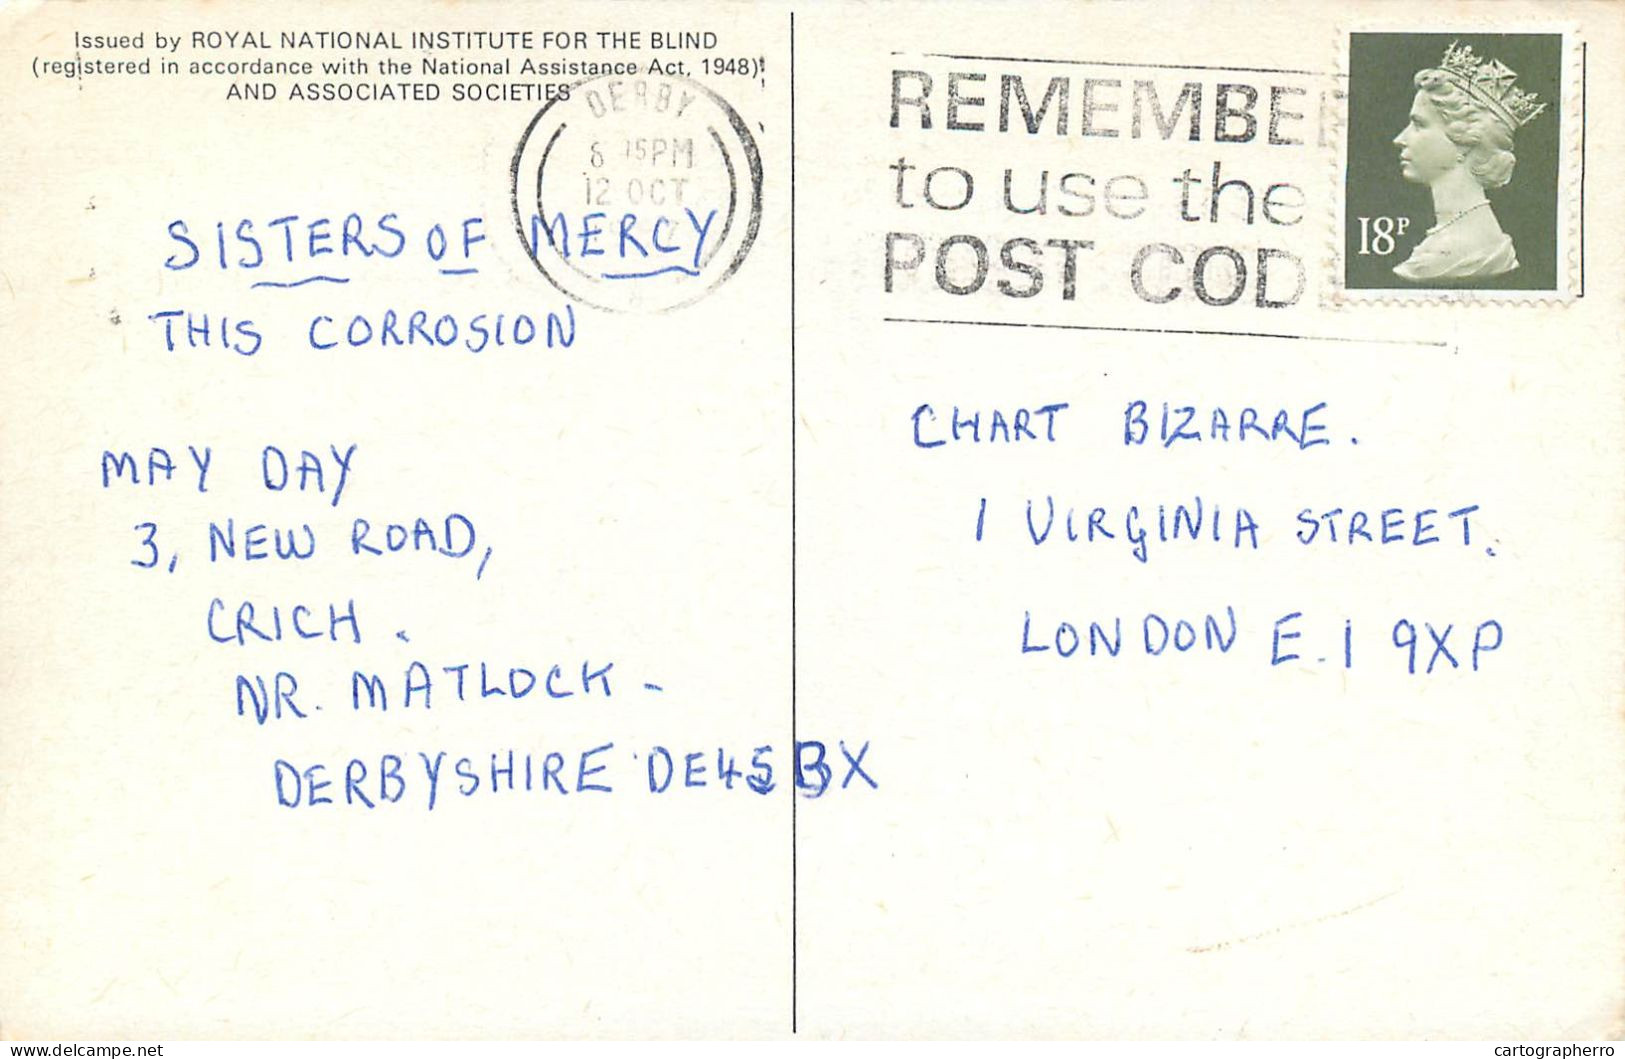 Issued by ROYAL NATIONAL INSTITUTE FOR THE BLIND
(registered in accordance with the National Assistance Act, 1948)
AND ASSOCIATED SOCIETIES
DERBY
12 OCT
REMEMBE
to use the
POST COD
18P
SISTERS OF MERCY
THIS CORROSION
MAY DAY
3, NEW ROAD,
CRICH.
NR. MATLOCK -
DERBYSHIRE DE45BX
CHART BIZARRE.
1 VIRGINIA STREET.
LONDON E.1 9XP
delcampe.net
cartographerro